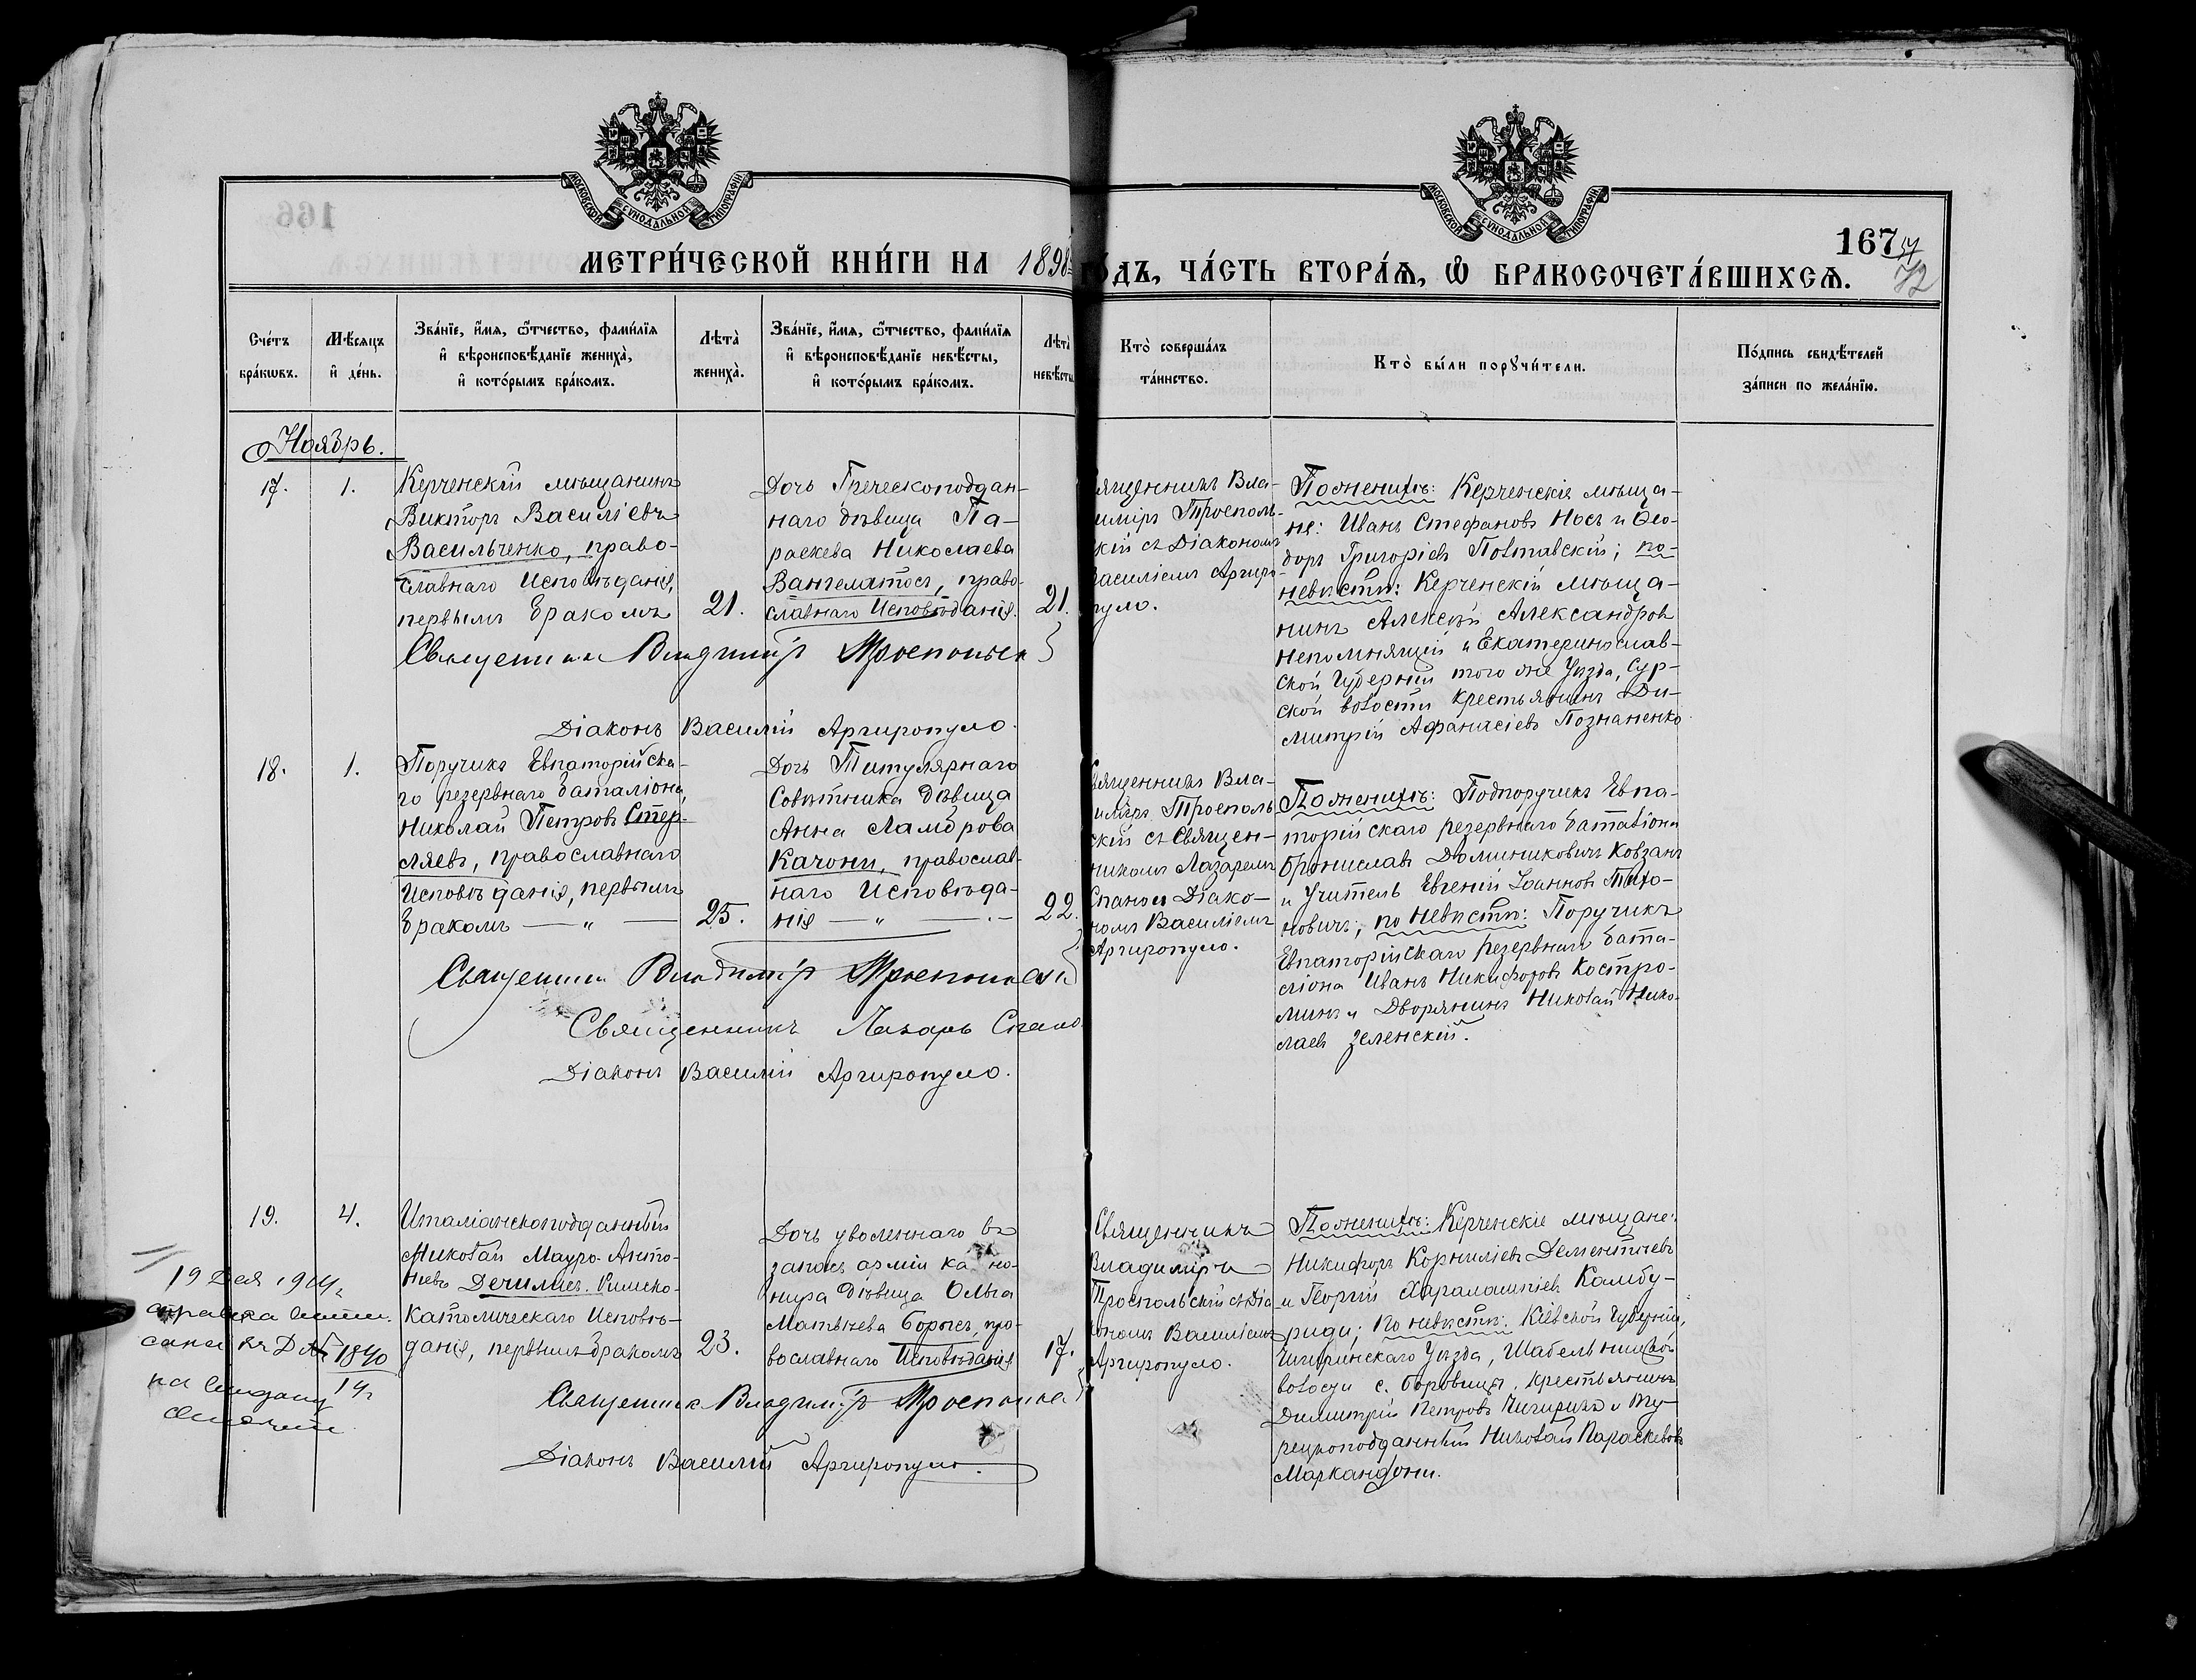 МОСКОВСКОЙ СѴНОДАЛЬНОЙ ТИПОГРАФІИ
МОСКОВСКОЙ СѴНОДАЛЬНОЙ ТИПОГРАФІИ
166
167
72
МЕТРИ́ЧЕСКОЙ КНИ́ГИ НА 1898 ГО́ДЪ, ЧА́СТЬ ВТОРА́Ѧ, Ѽ БРАКОСОЧЕТА́ВШИХСѦ.
Сче́тъ
бра́кѡвъ.
Мѣ́сяцъ
и҆ де́нь.
Зва́нїе, и҆́мя, ѻ҆́тчество, фами́лїя
и҆ вѣроисповѣ́данїе жениха̀,
и҆ кото́рымъ бра́комъ.
Лѣта̀
жениха̀.
Зва́нїе, и҆́мя, ѻ҆́тчество, фами́лїя
и҆ вѣроисповѣ́данїе невѣ́сты,
и҆ кото́рымъ бра́комъ.
Лѣта̀
невѣ́сты
Кто̀ соверша́лъ
та́инство.
Кто̀ бы́ли порꙋчи́тели.
По́дпись свидѣ́телей
за́писи по жела́нїю.
Ноябрь.
17.
1.
Керченскій мѣщанинъ
Викторъ Василіевъ
Васильченко, право-
славнаго Исповѣданія,
первымъ бракомъ
21.
Дочь Греческоподдан-
наго дѣвица Па-
раскева Николаева
Вангелатосъ, право-
славнаго Исповѣданія.
21.
ященникъ Вла-
иміръ Троеполь-
кій съ Діакономъ
асиліемъ Аргиро-
пуло.
По женихѣ: Керченскіе мѣща-
не: Иванъ Стефановъ Носъ и Ѳео-
доръ Григоріевъ Полтавскій; по-
невѣстѣ: Керченскій мѣща-
нинъ Алексѣй Александровъ
Непомнящій и Екатеринослав-
ской Губерніи того же Уѣзда, Сур-
ской волости крестьянинъ Ди-
митрій Афанасіевъ Познаненко
Священникъ Владиміръ Троепольск
Діаконъ Василій Аргиропуло.
18.
1.
Поручикъ Евпаторійска-
го резервнаго баталіона,
Николай Петровъ Стер-
ляевъ, православнаго
Исповѣданія, первымъ
бракомъ — „ —
25.
Дочь Титулярнаго
Совѣтника дѣвица
Анна Ламброва
Качони, православ-
наго Исповѣда-
нія — „ —
22.
ященникъ Вла-
иміръ Трополь
скій съ Священ-
никомъ Лазаремъ
Спано и Діако-
номъ Василіемъ
Аргиропуло.
По женихѣ: Подпоручикъ Евпа-
торійскаго резервнаго баталіона
Брониславъ Доминиковичъ Ковзанъ
и Учитель Евгеній Іоанновъ Тихо-
новичъ; по невѣстѣ: Поручикъ
Евпаторійскаго резервнаго бата-
ліона Иванъ Никифоровъ Костро-
минъ и Дворянинъ Николай Нико-
лаевъ Зеленскій.
Священникъ Владиміръ Троепольскій
Священникъ Лазарь Спано.
Діаконъ Василій Аргиропуло.
19.
4.
Италіанскоподданный
Николай Мауро-Анто-
ніевъ Дечилисъ. Римско-
католическаго Исповѣ-
данія, первымъ бракомъ
23.
Дочь уволеннаго въ
запасъ арміи кано-
нира дѣвица Ольга
Матвѣева Борысъ, пра-
вославнаго Исповѣданія
17.
Священникъ
Владиміръ
Троепольскій съ Діа
кономъ Василіемъ
Аргиропуло.
По женихѣ: Керченскіе мѣщане:
Никифоръ Корниліевъ Дементіевъ
и Георгій Харалампіевъ Камбу-
риди; по невѣстѣ: Кіевской Губерніи,
Чигиринскаго Уѣзда, Шабельницкой
волости с. Боровицы, крестьянинъ
Димитрій Петровъ Чигиринъ и Ту-
рецкоподданный Николай Параскевовъ
Маркандони.
Священникъ Владиміръ Троепольск
Діаконъ Василій Аргиропуло.
19 Дек 1914 г.
справка
№ 1840
14 г.